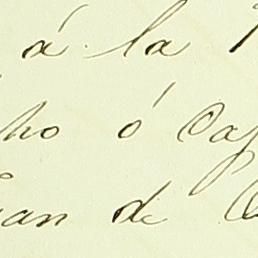 á la
ho ó Cap
an de